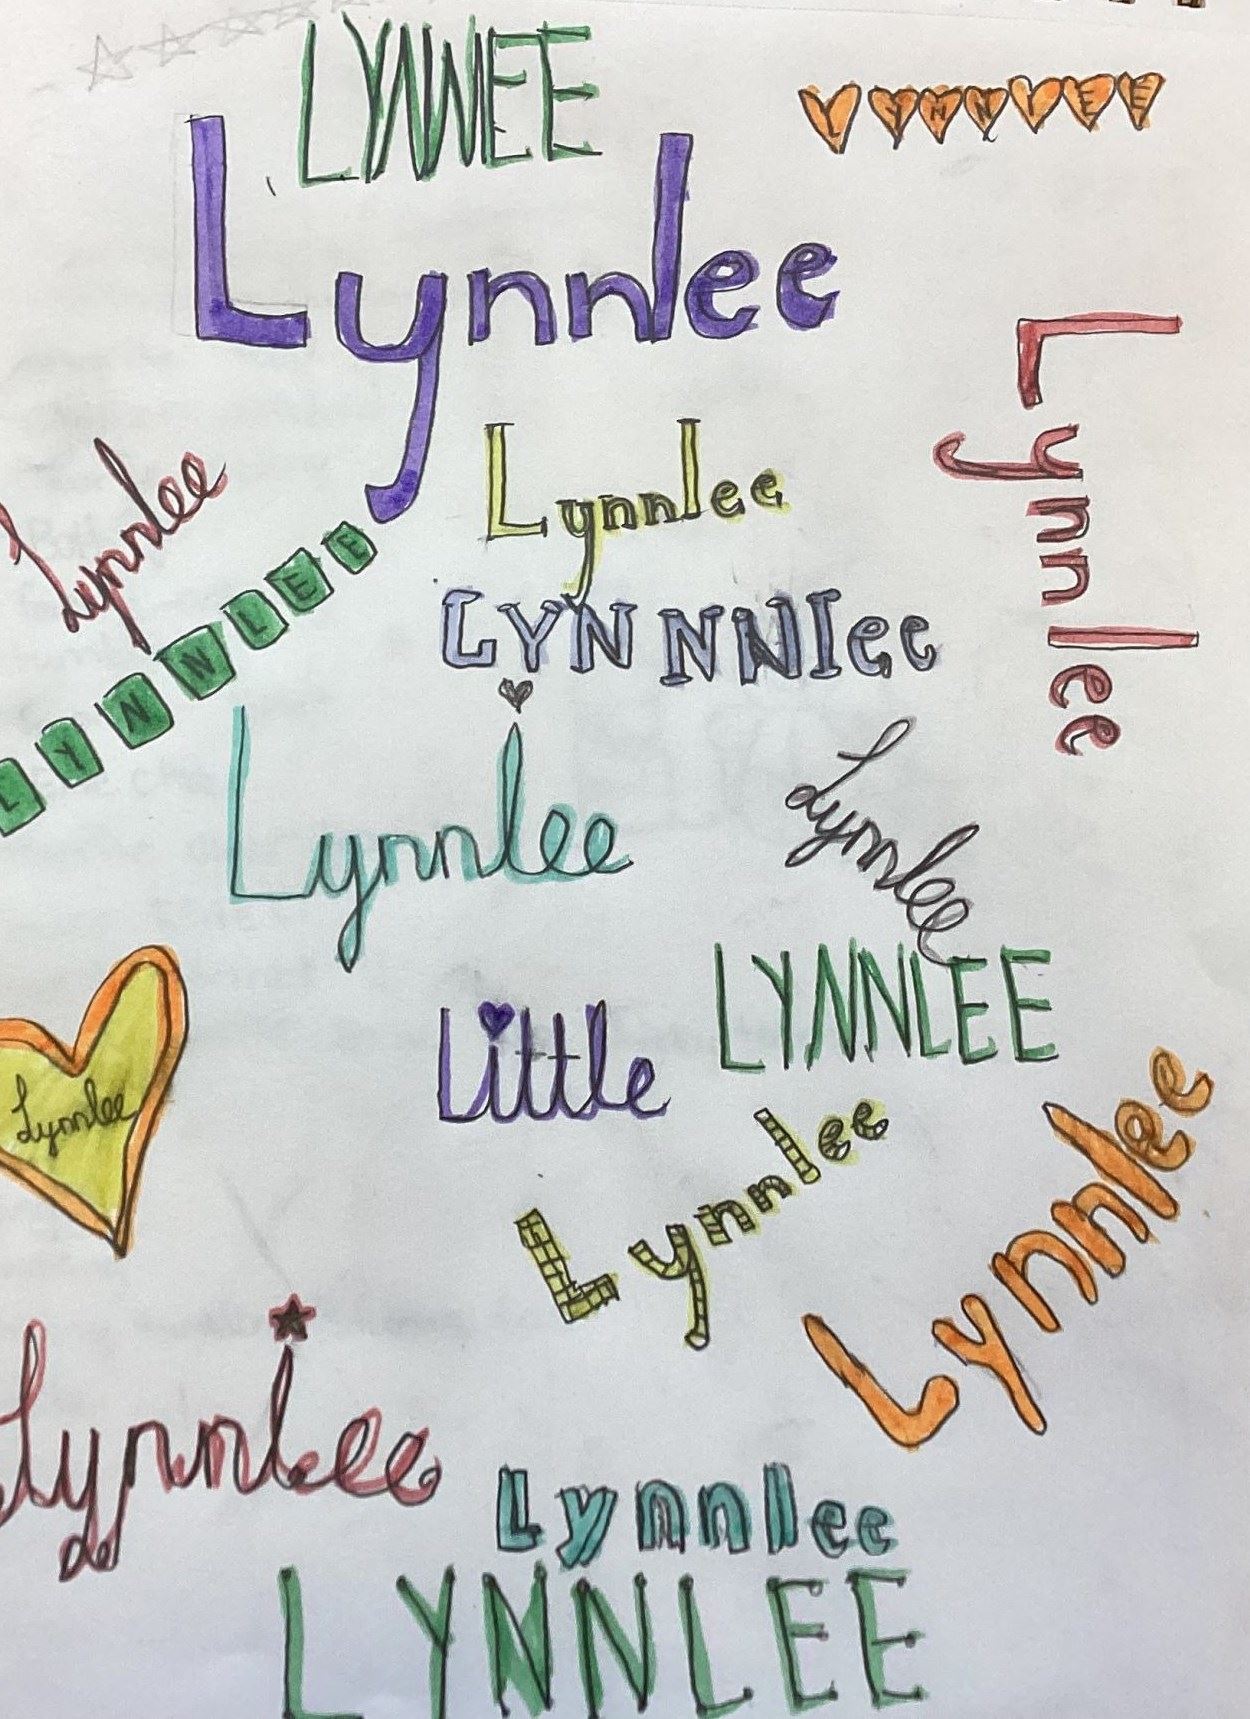 LYNNLEE
LYNNLEE
Lynnlee
Lynnlee
Lynnlee
Lynnlee
LYNNLEE
LYNNNlee
Lynnlee
Lynnlee
LYNNLEE
Little
Lynnlee
Lynnlee
Lynnlee
Lynnlee
Lynnlee
LYNNLEE